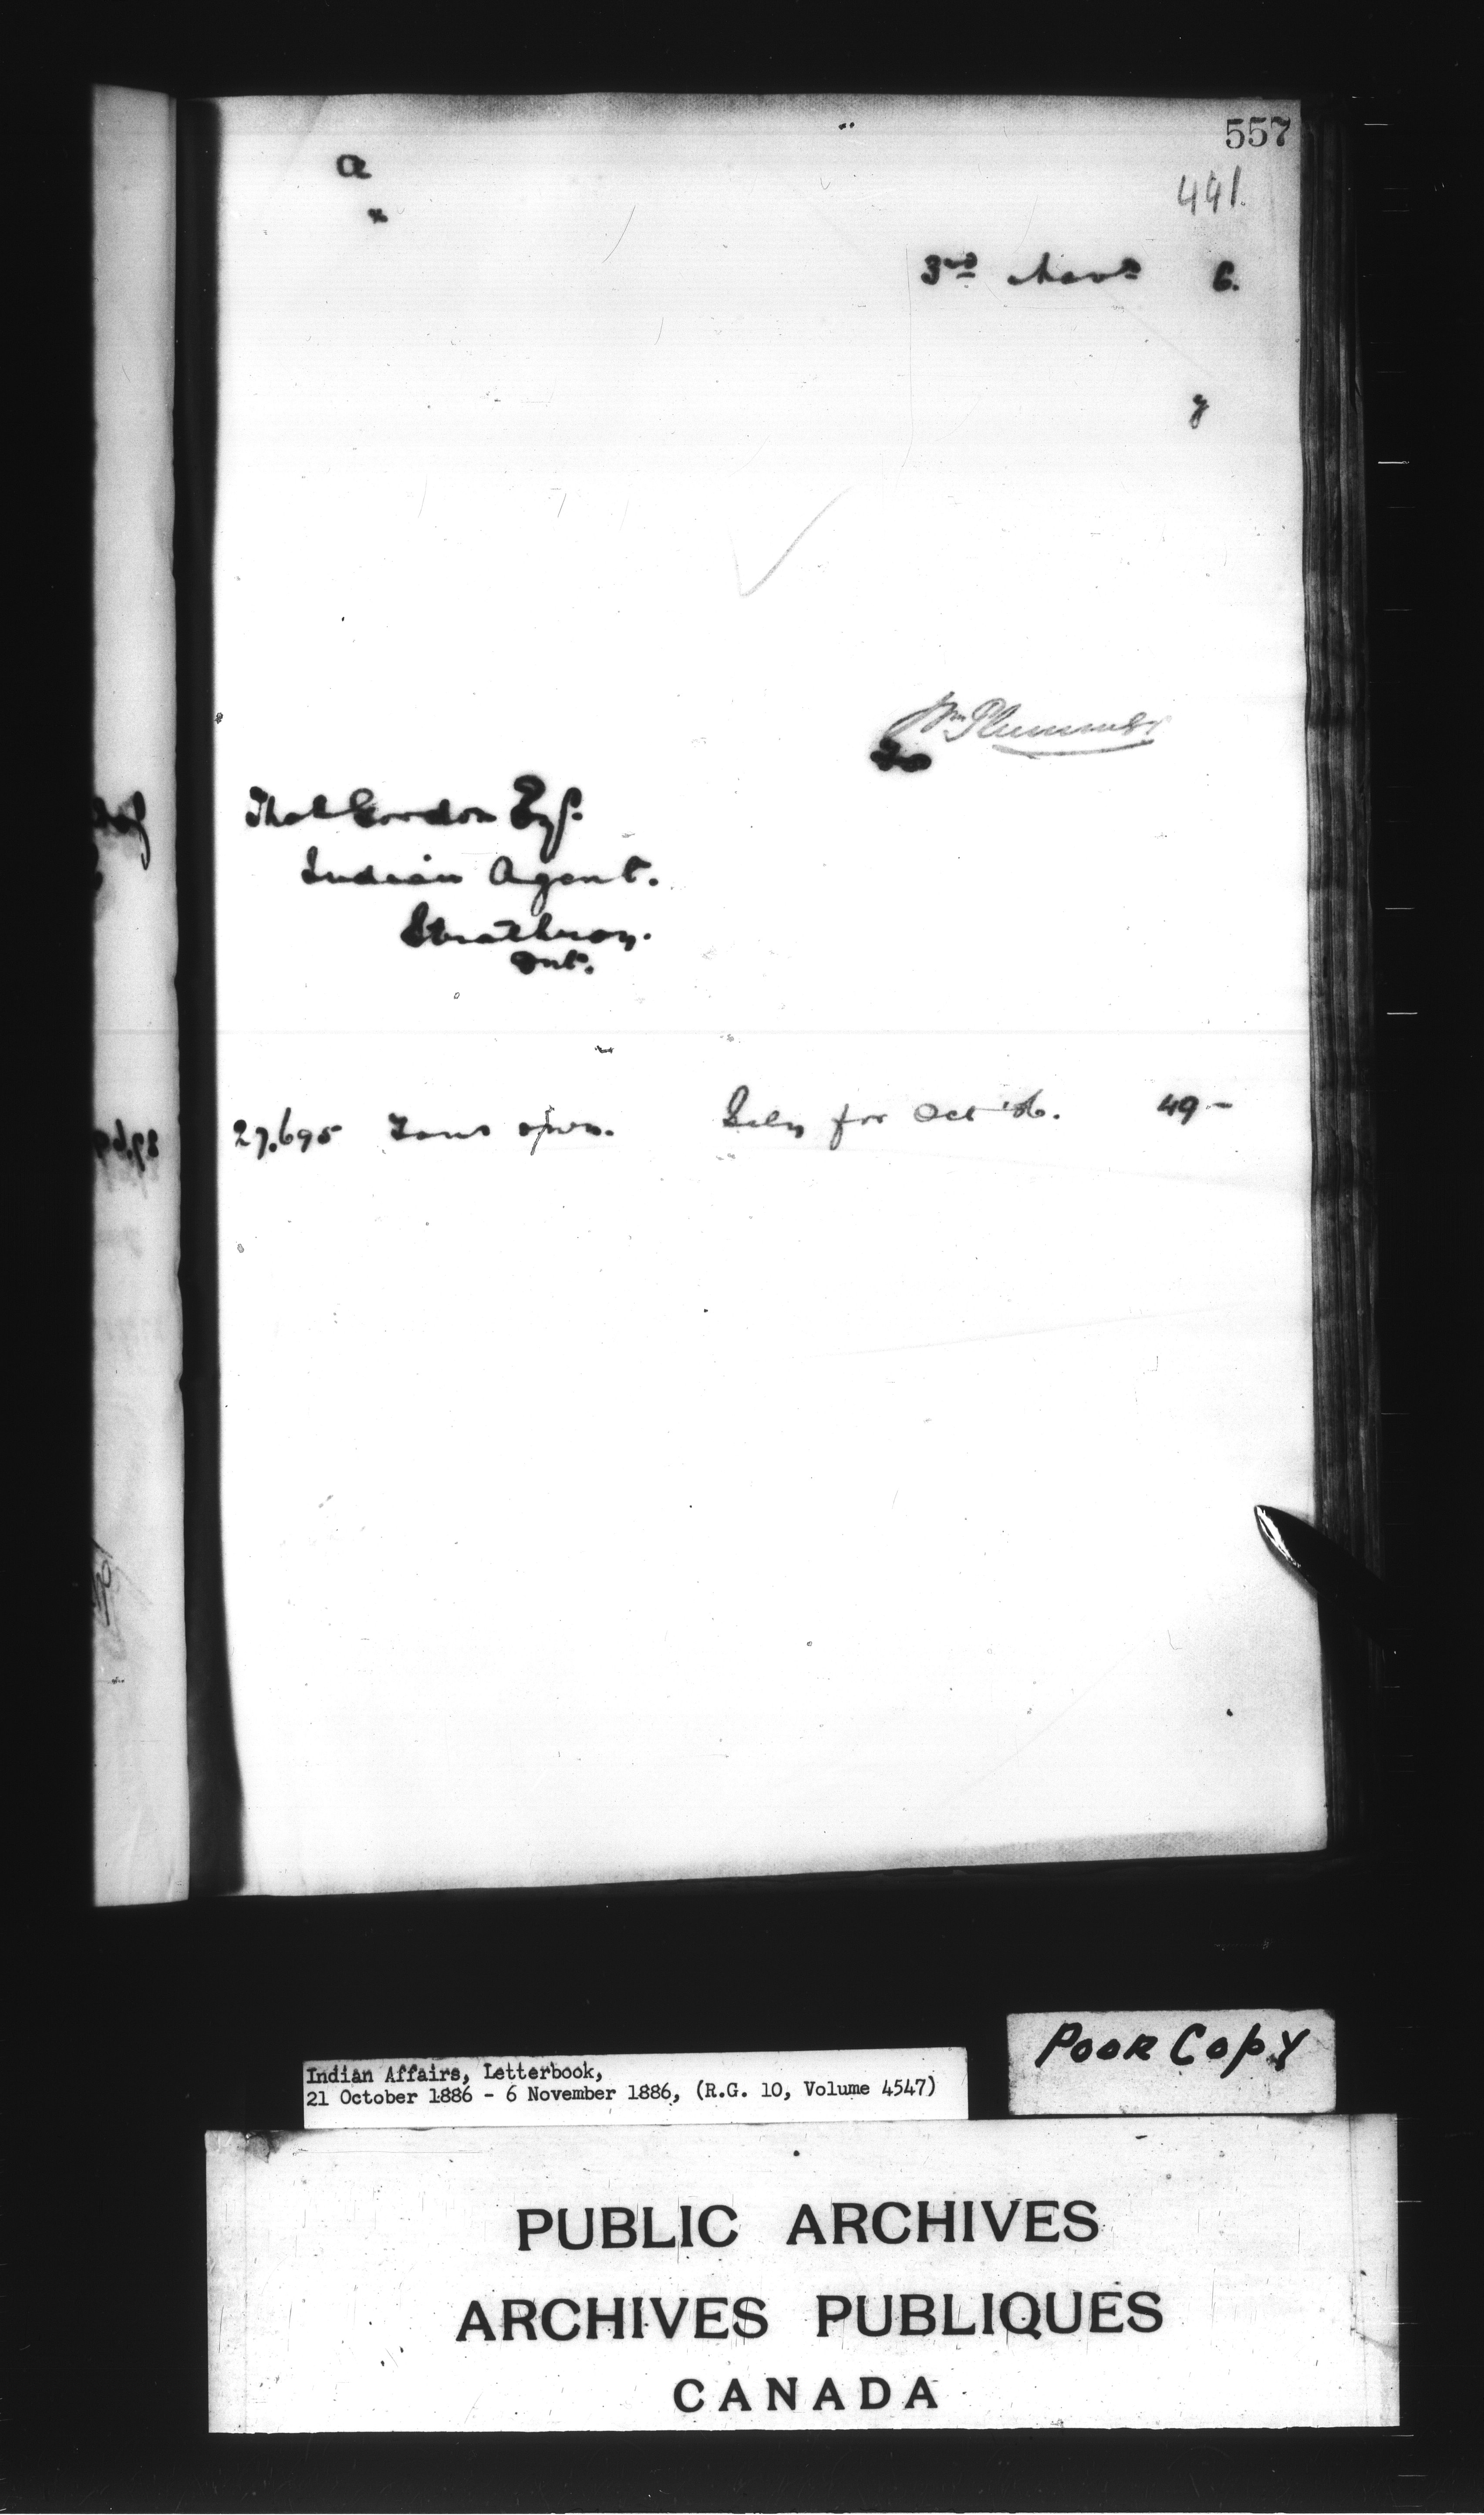 557
a
441.
x
3rd Novr 6.
y
Wm Plummer
Fo
Thos Gordon Esq.
Indian Agent.
Strathroy.
Ont.
27.695 Yours Saly for Oct '86. 49-
Poor Copy
Indian Affairs, Letterbook,
21 October 1886 - 6 November 1886, (R.G. 10, Volume 4547)
PUBLIC ARCHIVES
ARCHIVES PUBLIQUES
CANADA